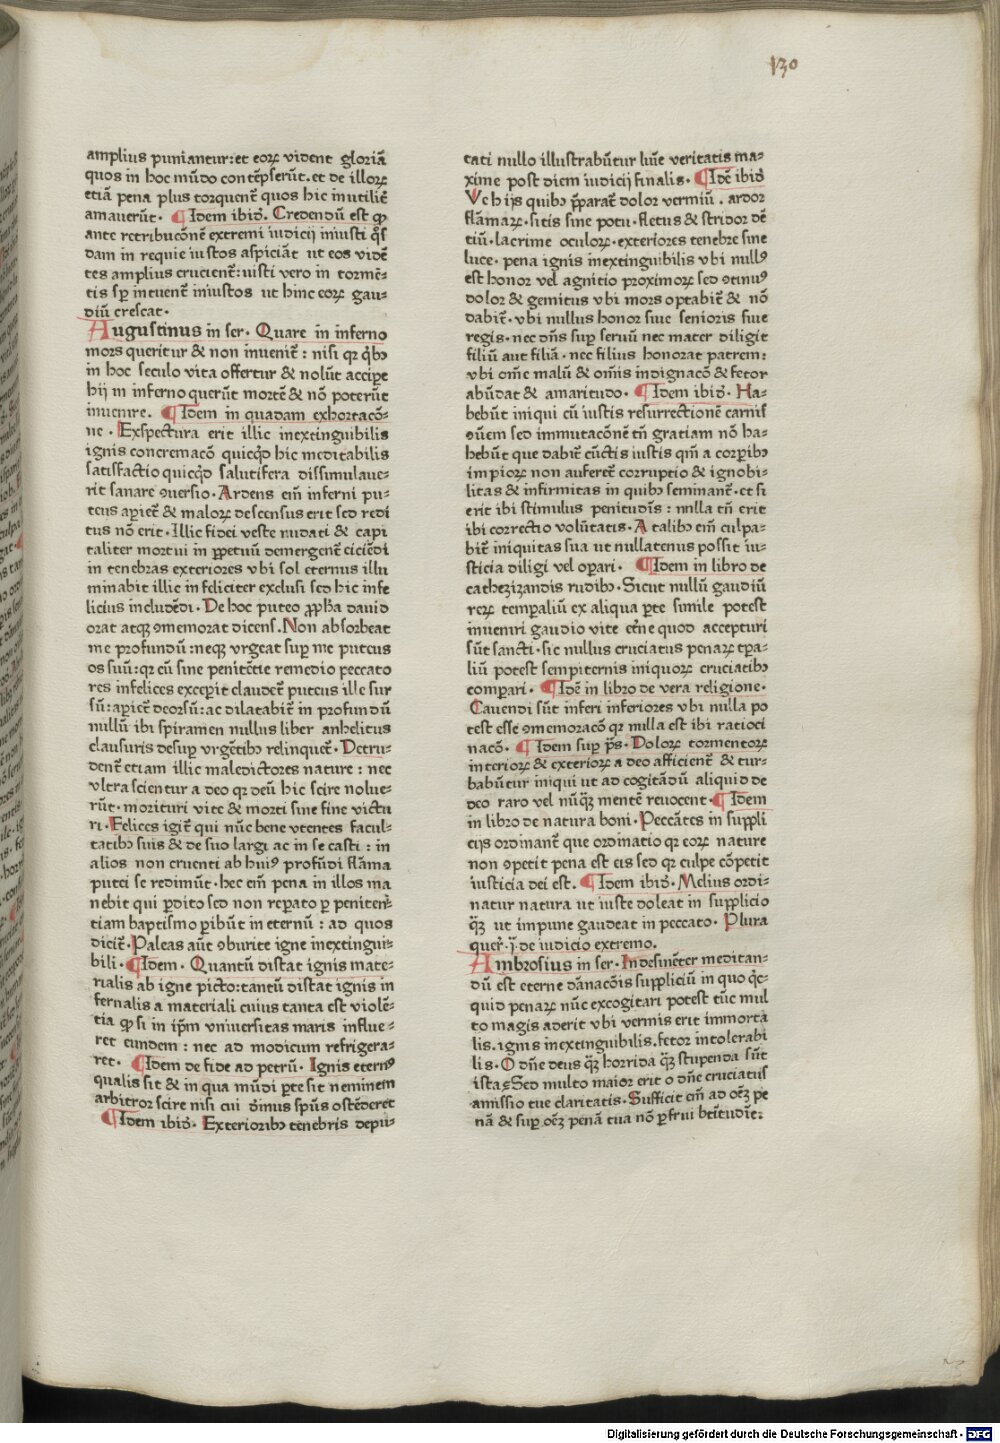 130
amplius puniantur: et eoꝝ vident gloriā
quos in hoc mūdo contēpserūt. et de illoꝝ
etiā pena plus torquent᷑ quos hic inutilit᷑
amauerūt. ¶ Idem ibid᷑. Credendū est ꝙ
ante retribucōnē extremi iudicij iniusti q̄s
dam in requie iustos aspiciāt ut eos vidē
tes amplius crucient᷑: iusti vero in tormē-
tis sp̄ intuent᷑ iniustos ut hinc eoꝝ gau-
diū crescat.
Augustinus in ser. Quare in inferno
mors queritur & non inuenit᷑: nisi qꝛ q̇bꝫ
in hoc seculo vita offertur & nolūt accipe
hij in inferno querūt mortē & nō poterūt
inuenire. ¶ Idem in quadam exhortacō-
ne. Exspectura erit illic inextinguibilis
ignis concremacō quicq̇d hic meditabilis
satisfactio quicq̇d salutifera dissimulaue-
rit sanare ꝯuersio. Ardens em̄ inferni pu-
teus apiet᷑ & maloꝝ descensus erit sed redi
tus nō erit. Illic fidei veste nudati & capi
taliter mortui in ꝑpetuū demergent᷑ eiciēdi
in tenebras exteriores vbi sol eternus illu
minabit illic infeliciter exclusi sed hic infe
licius includēdi. De hoc puteo ꝓpha dauid
orat atqꝫ ꝯmemorat dicens. Non absorbeat
me profundū: neqꝫ vrgeat suꝑ me puteus
os suū: qꝛ cū sine penitētie remedio peccato
res infelices exceꝑit claudet᷑ puteus ille sur
sū: aꝑiet᷑ deorsū: ac dilatabit᷑ in profundū
nullū ibi spiramen nullus liber anhelitus
clausuris desuꝑ vrgētibꝫ relinquet᷑. Detru-
dent᷑ etiam illic maledictores nature: nec
vltra scientur a deo qꝛ deū hic scire nolue-
rūt. morituri vite & morti sine fine victu
ri. Felices igit᷑ qui nūc bene vtentes facul-
tatibꝫ suis & de suo largi ac in se casti: in
alios non cruenti ab huiꝰ profūdi flāma
putei se redimūt. hec em̄ pena in illos ma
nebit qui ꝑdito sed non reꝑato ꝑ peniten-
tiam baptismo ꝑibūt in eternū: ad quos
dicit᷑. Paleas aūt ꝯburite igne inextingui-
bili. ¶ Idem. Quantū distat ignis mate-
rialis ab igne picto: tantū distat ignis in
fernalis a materiali cuius tanta est violē-
tia ꝙ si in ip̄m vniuersitas maris influe-
ret eundem: nec ad modicum refrigera-
ret. ¶ Idem de fide ad petrū. Ignis eternꝰ
qualis sit & in qua mūdi ꝑte sit neminem
arbitror scire nisi cui diuinus sp̄us ostēderet
¶ Idem ibid᷑. Exterioribꝫ tenebris depu-
tati nullo illustrabūtur lume veritatis ma-
xime post diem iudicij finalis. ¶ Idē ibid᷑
Ve hijs quibꝫ ꝑparat᷑ dolor vermiū. ardor
flāmaꝝ. sitis sine potu. fletus & stridor dē
tiū. lacrime oculoꝝ. exteriores tenebre sine
luce. pena ignis inextinguibilis vbi nullꝰ
est honor vel agnitio proximoꝝ sed ꝯtinuꝰ
dolor & gemitus vbi mors optabit᷑ & nō
dabit᷑. vbi nullus honor siue senioris siue
regis. nec dn̄s suꝑ seruū nec mater diligit
filiū aut filiā. nec filius honorat patrem:
vbi om̄e malū & om̄is indignacō & fetor
abūdat & amaritudo. ¶ Idem ibid᷑. Ha-
bebūt iniqui cū iustis resurrectionē carnis
ꝯūem sed immutacōnē tn̄ gratiam nō ha-
bebūt que dabit᷑ cūctis iustis qm̄ a corꝑibꝫ
impioꝝ non auferet᷑ corruptio & ignobi-
litas & infirmitas in quibꝫ seminant᷑. et si
erit ibi stimulus penitudīs: nulla tn̄ erit
ibi correctio volūtatis. A talibꝫ em̄ culpa-
bit᷑ iniquitas sua ut nullatenus possit iu-
sticia diligi vel oꝑari. ¶ Idem in libro de
cathezizandis rudibꝫ. Sicut nullū gaudiū
reꝝ temꝑaliū ex aliqua ꝑte simile potest
inueniri gaudio vite et᷑ne quod accepturi
sūt sancti. sic nullus cruciatus penaꝝ tꝑa-
liū potest sempiternis iniquoꝝ cruciatibꝫ
comꝑari. ¶ Idē in libro de vera religione.
Cauendi sūt inferi inferiores vbi nulla po
test esse ꝯmemoracō qꝛ nulla est ibi ratioci
nacō. ¶ Idem suꝑ ps̄. Doloꝝ tormentoꝝ
interioꝝ & exterioꝝ a deo afficient᷑ & tur-
babūtur iniqui ut ad cogitādū aliquid de
deo raro vel nūq̄ꝫ mentē reuocent. ¶ Idem
in libro de natura boni. Peccātes in suppli
cijs ordinant᷑ que ordinatio qꝛ eoꝝ nature
non ꝯpetit pena est eis sed qꝛ culpe cōpetit
iusticia dei est. ¶ Idem ibid᷑. Melius ordi-
natur natura ut iuste doleat in supplicio
q̄ꝫ ut impune gaudeat in peccato. Plura
quer᷑. j. de iudicio extremo.
Ambrosius in ser. Indesinēter meditan-
dū est eterne dānacōis suppliciū in quo q̇c-
quid penaꝝ nūc excogitari potest tūc mul
to magis aderit vbi vermis erit immorta
lis. ignis inextinguibilis. fetor intolerabi
lis. O dn̄e deus q̄ꝫ horrida q̄ꝫ stupenda sūt
ista. Sed multo maior erit o dn̄e cruciatus
amissio tue claritatis. Sufficit em̄ ad oēꝫ pe
nā & suꝑ oēꝫ penā tua nō ꝑfrui btītudīe:
Digitalisierung gefördert durch die Deutsche Forschungsgemeinschaft - DFG